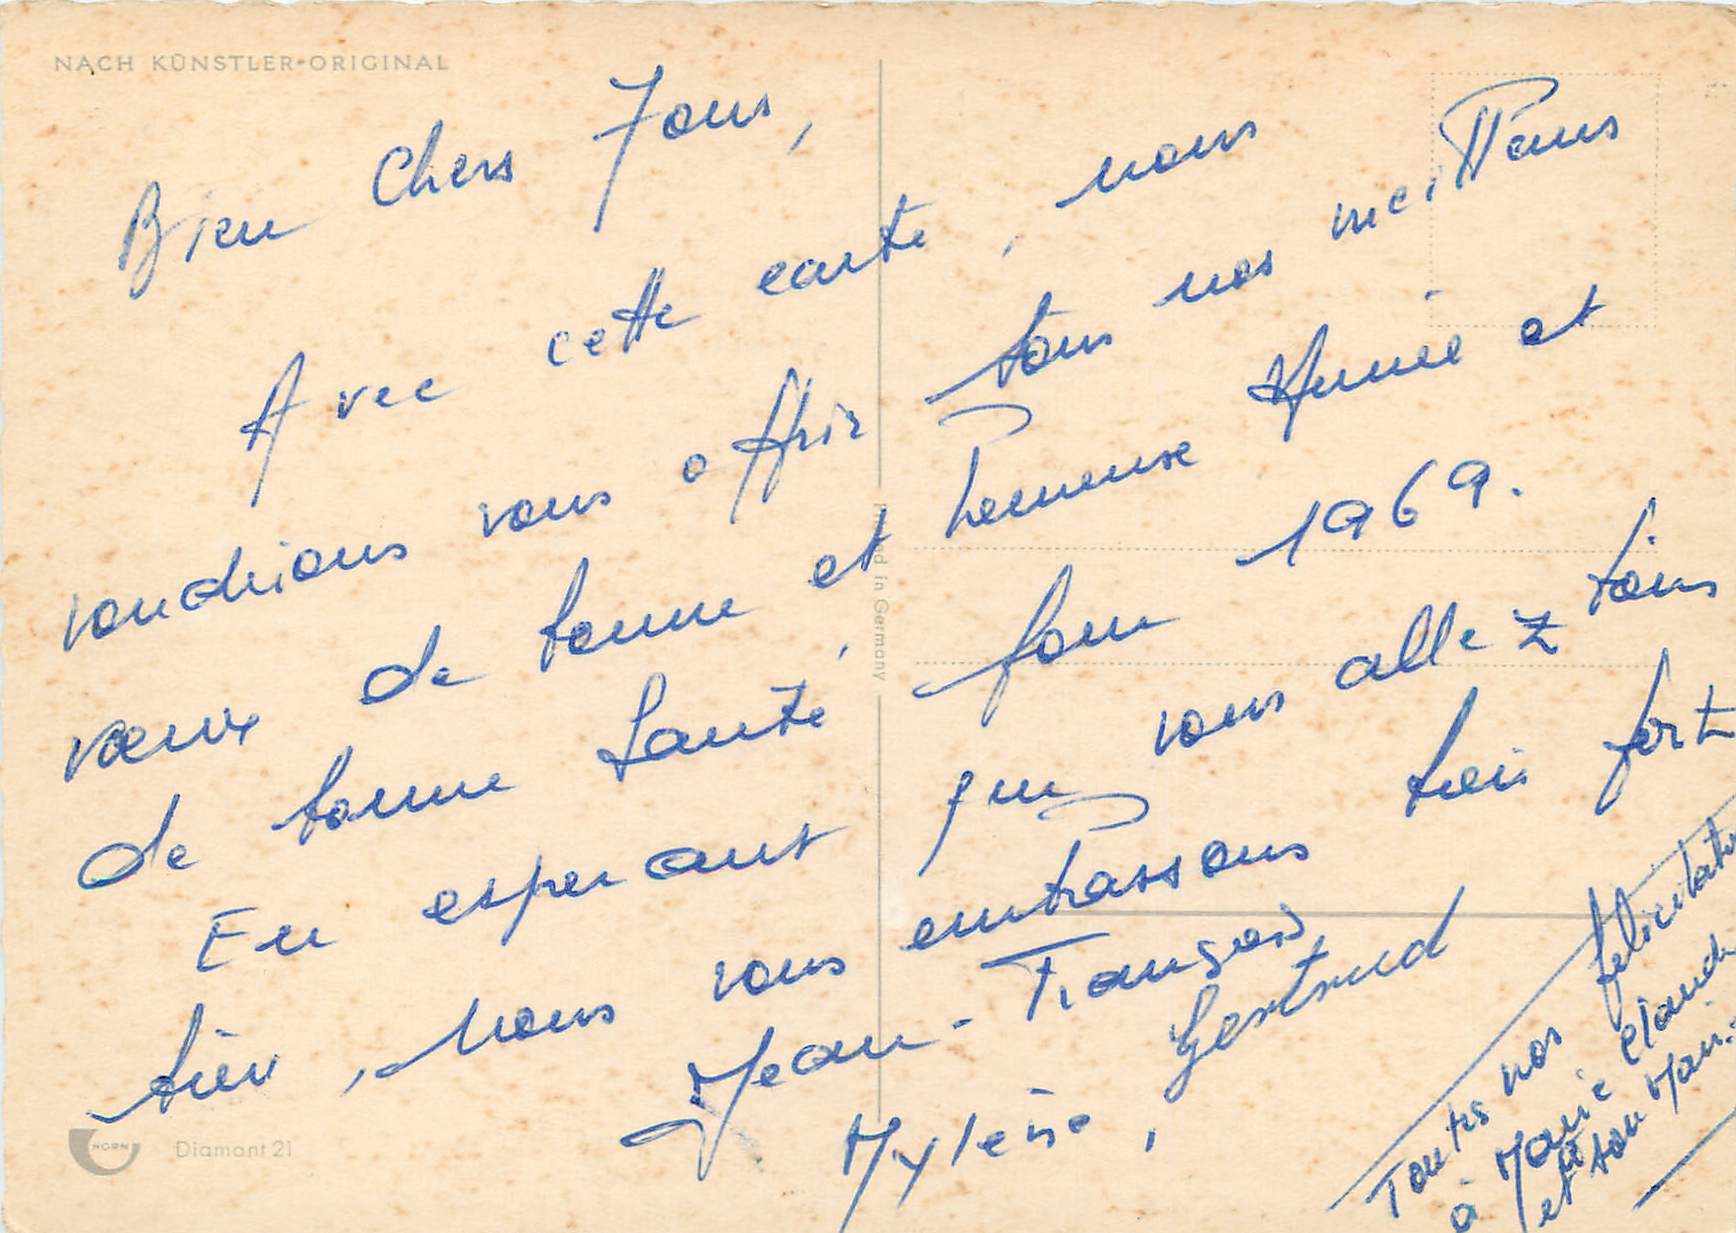 NACH KÜNSTLER-ORIGINAL
Bien Chers Tous,
Avec cette carte, nous
voudrions vous offrir tous nos meilleurs
vœux de bonne et heureuse Année et
de bonne Santé, pour 1969.
En esperant que vous allez tous
bien, Nous vous embrassons très fort
Jean-François
Mylène, Gertrud
Toutes nos félicitatio
à Marie Claude
et son Mari
Printed in Germany
HORN
Diamant 21